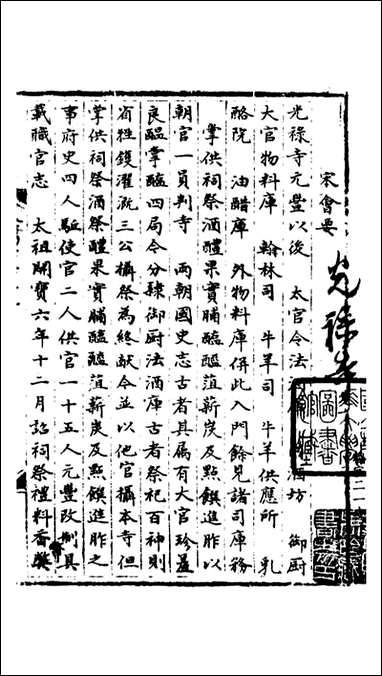 光禄寺
宋會要
光禄寺元豐以後　太官令法酒坊　御厨
大官物料庫　翰林司　牛羊司　牛羊供應所　乳
酪院　油醋庫　外物料庫併此入門餘見諸司庫務
掌供祠祭酒醴果實脯醢醓菹薪炭及點饌進胙以
朝官一員判寺　兩朝國史志古者其屬有大官珍羞
良醞掌醢四局令分隸御厨法酒庫古者祭祀百神則
省牲鑊濯溉三公攝祭為終獻令並以他官攝本寺但
掌供祠祭酒祭醴果實脯醢醓菹薪炭及點饌進胙之
事府史四人驅使官二人供官一十五人元豐改制具
載職官志　太祖開寶六年十二月詔祠祭禮料香幣